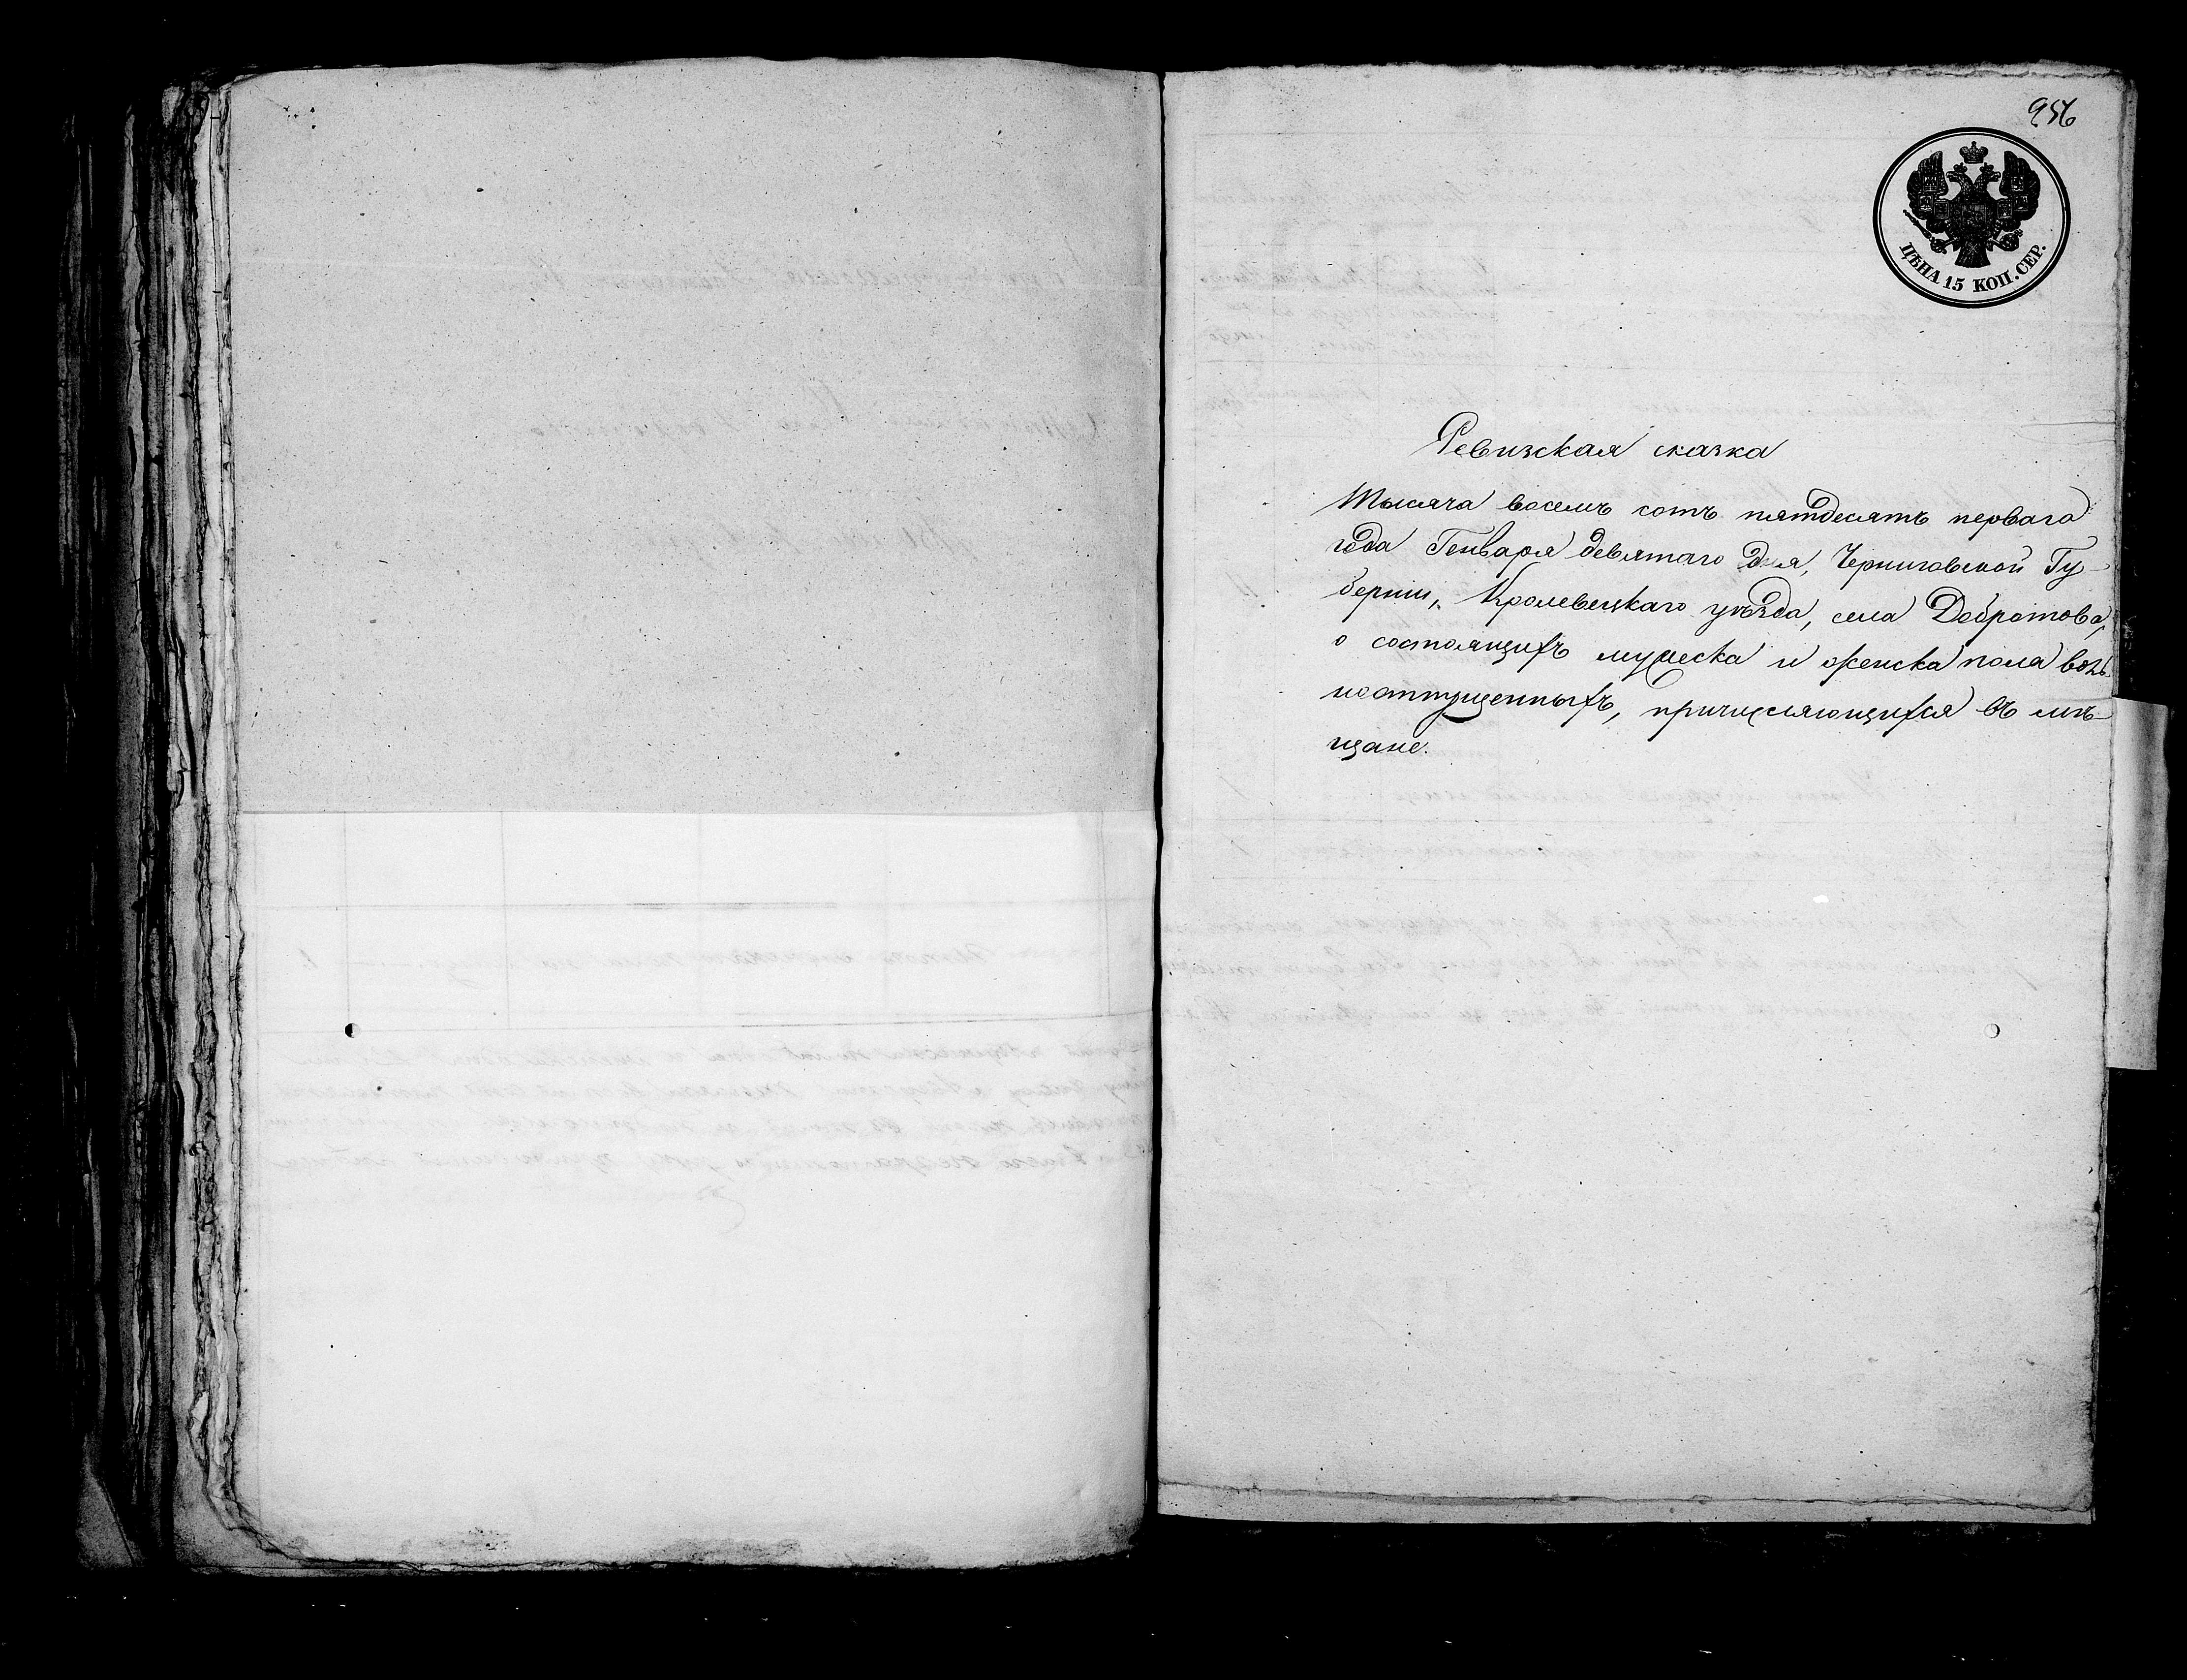 956
ЦѢНА 15 КОП. СЕР.
Ревизская сказка
Тысяча восемь сотъ пятдесятъ перваго
года Генваря девятаго дня, Черниговской Гу-
берніи, Кролевецкаго уѣзда, села Добротова,
о состоящихъ мужеска и женска пола воль-
ноотпущенныхъ, причисляющихся въ мѣ-
щане.